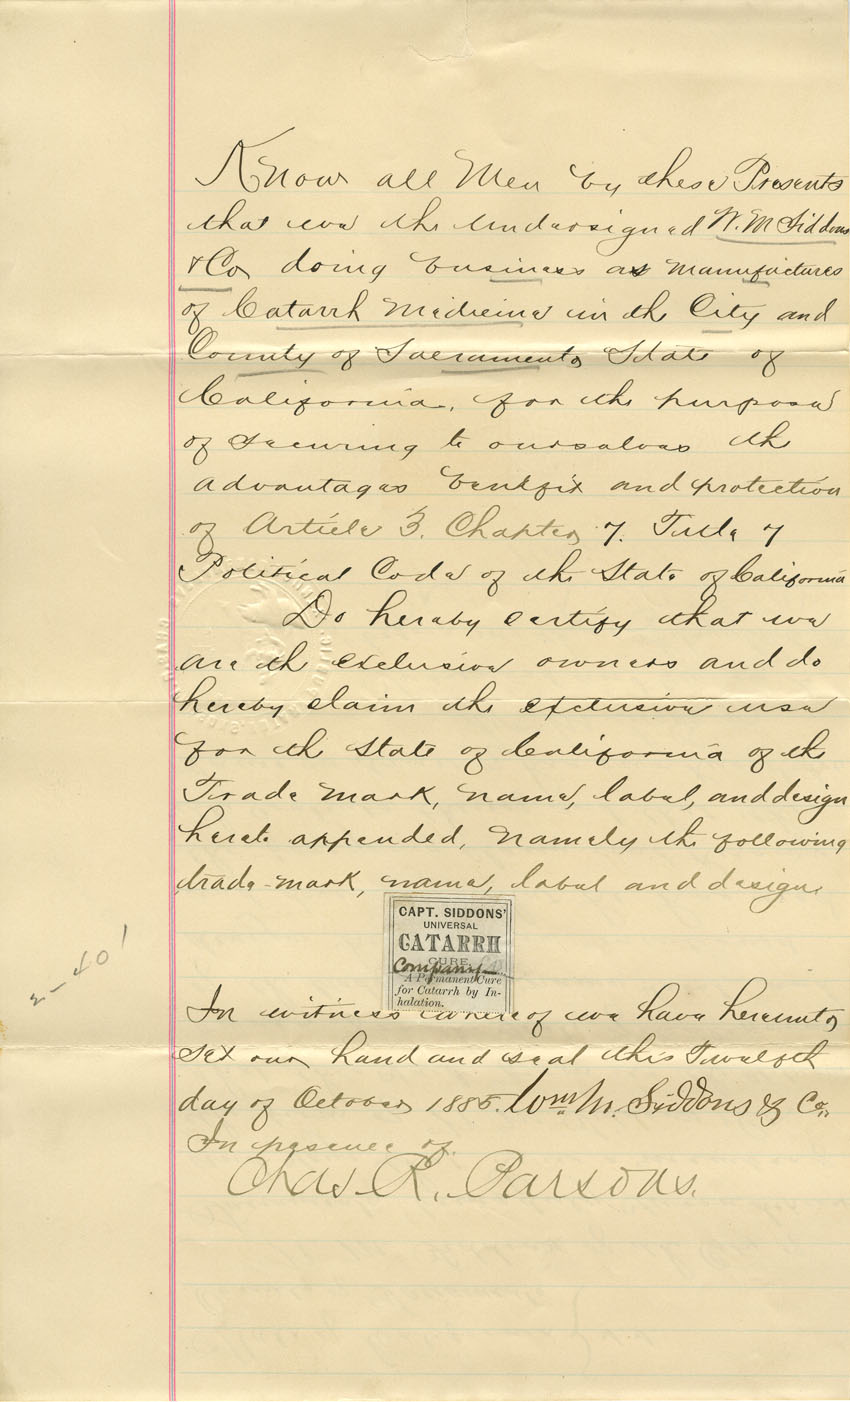 Know all Men by these Presents
that we the undersigned W. M Siddons
& Co doing business as manufactures
of Catarrh Medicine in the City and
County of Sacramento State of
California, for the purpose
of securing to ourselves the
advantages benefit and protection
of Article 3. Chapter 7. Title 7
Political Code of the State of California
Do hereby certify that we
are the exclusive owners and do
hereby claim the exclusive use
for the State of California of the
Trade mark, name, label, and design
hereto appended, namely the following
trade-mark, name, label and design.
CAPT. SIDDONS'
UNIVERSAL
CATARRH
CURE
Company
A Permanent Cure
for Catarrh by In-
halation.
2-40
In witness whereof we have hereunto
set our hand and seal this Twelfth
day of October 1885. Wm M. Siddons & Co.
In presence of.
Chas R. Parsons.